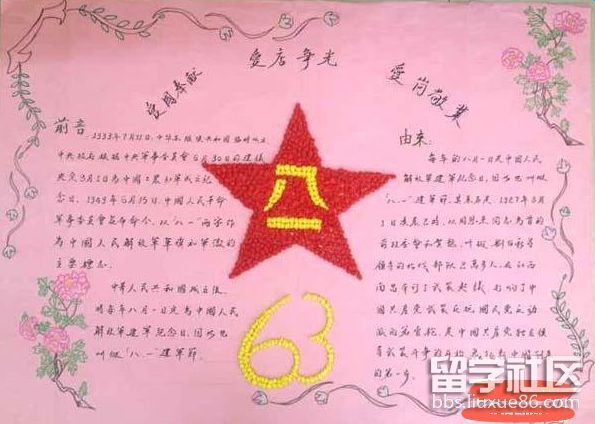 愛国奉献
愛店争光
愛岗敬業
前言:
1933年7月11日,中华苏维埃共和国临时
中央政府根据中央军事委员会6月30日的建议
决定8月1日为中国工农红军成立纪
念日。1949年6月15日,中国人民革命
军事委员会发布命令,以"八一"两字作
为中国人民解放军军旗和军徽的
主要标志。
中华人民共和国成立后,
将每年八月一日定为中国人民
解放军建军纪念日,因此也
叫做"八一"建军节
八一
63
由来:
每年的八月一日是中国人民
解放军建军纪念日,因此也叫做
"八一"建军节。1927年8月
1日,以周恩来同志为首的
和贺龙、叶挺、
领导的部队二万多人,在江西
南昌举行了武装起义,打响了
中国共产党武装反抗国民党反动
派的第一枪,是中国共产党
的第一步。
留学社区
bbs.liuxue86.com